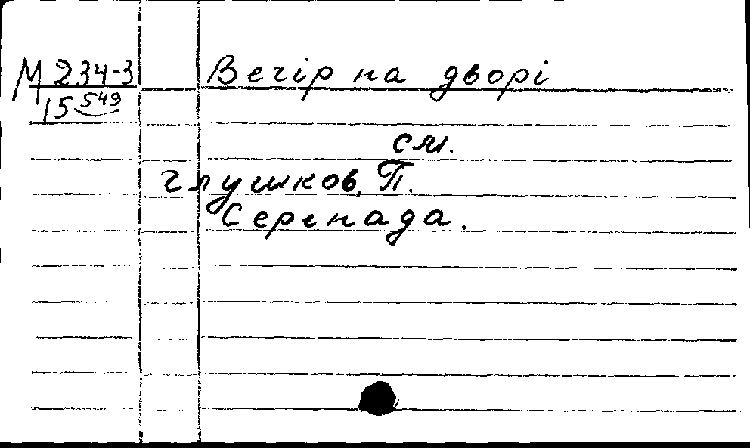 М 234-3 Вечір на дворі
15 549
см.
Глушков, П.
Серенада.